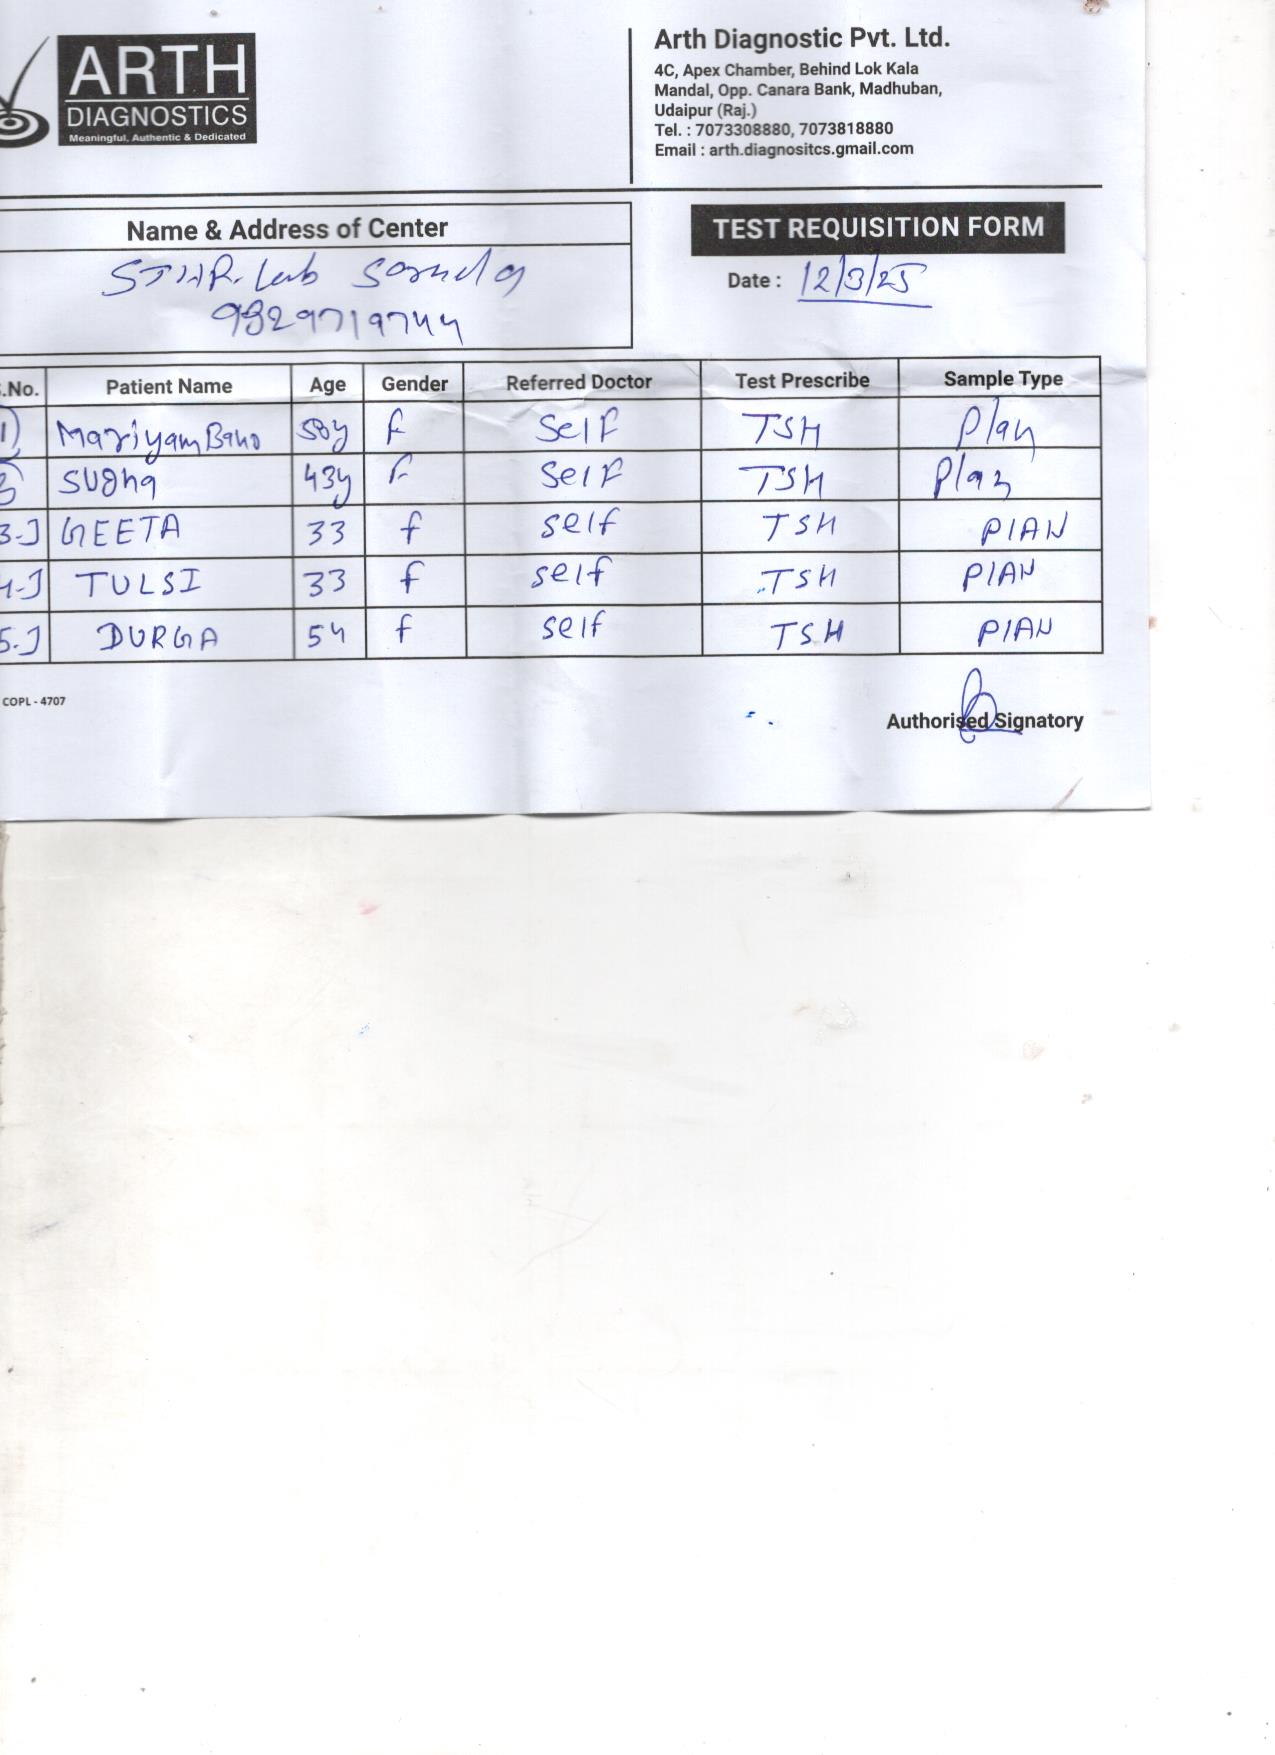 ARTH
DIAGNOSTICS
Meaningful, Authentic & Dedicated
Arth Diagnostic Pvt. Ltd.
4C, Apex Chamber, Behind Lok Kala
Mandal, Opp. Canara Bank, Madhuban,
Udaipur (Raj.)
Tel. : 7073308880, 7073818880
Email : arth.diagnositcs.gmail.com
Name & Address of Center
Lab
TEST REQUISITION FORM
Date : 12/3/25
S.No. Patient Name Age Gender Referred Doctor Test Prescribe Sample Type
1) Mariyam Bano 58y F Self TSH Plan
43y F Self TSH Plan
3-] GEETA 33 f self TSH PlAN
4-] TULSI 33 f self TSH PlAN
5-] DURGA 54 f self TSH PlAN
COPL - 4707
Authorised Signatory